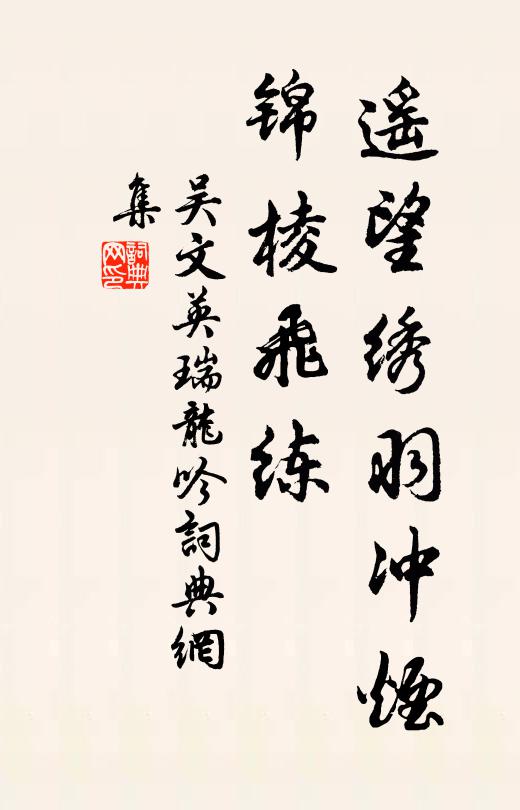 遥望绣羽冲烟
锦棱飞练
吴文英瑞龍吟詞典網
集
詞典网印